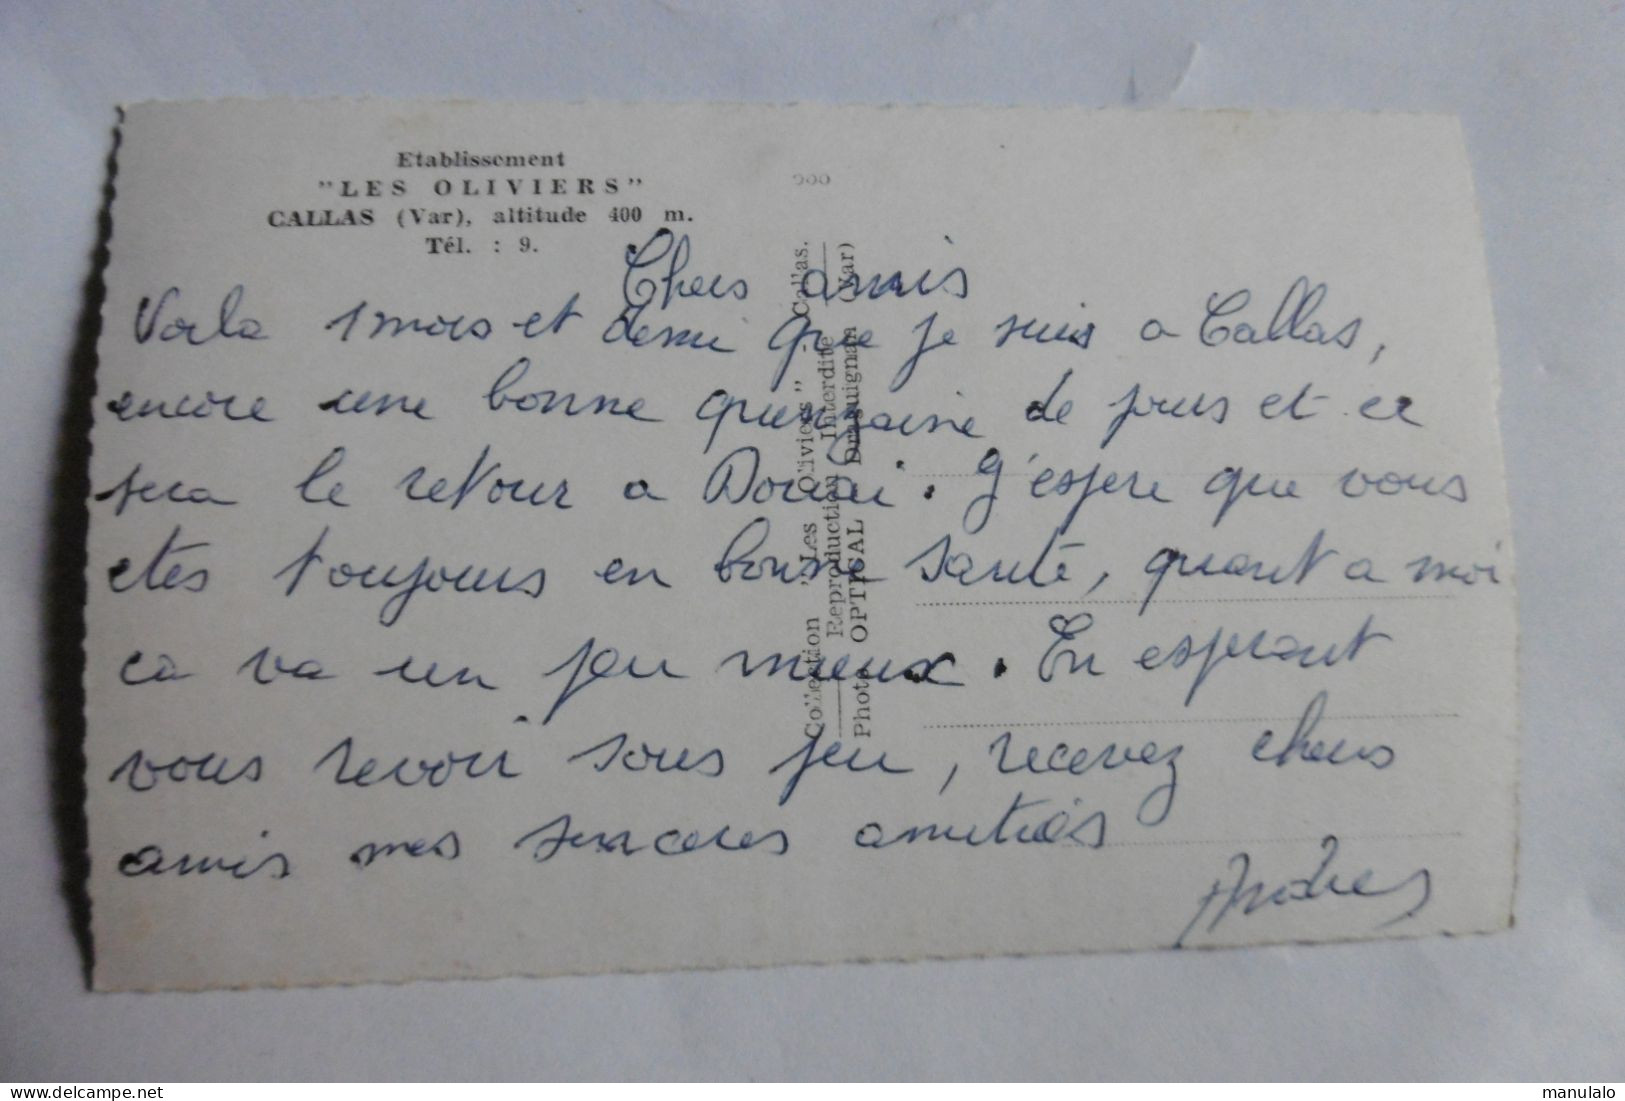 Etablissement
"LES OLIVIERS"
CALLAS (Var), altitude 400 m.
Tél. : 9.
Chers amis
Voila 1 mois et demi que je suis a Callas,
encore une bonne quinzaine de jours et ce
sera le retour a Douai. J'espere que vous
etes toujours en bonne santé, quant a moi
ca va un peu mieux. En esperant
vous revoir sous peu, recevez chers
amis mes sinceres amitiés
Collection "Les Oliviers" - Callas.
Reproduction Interdite
Photo OPTICAL Draguignan (Var)
manulalo
delcampe.net